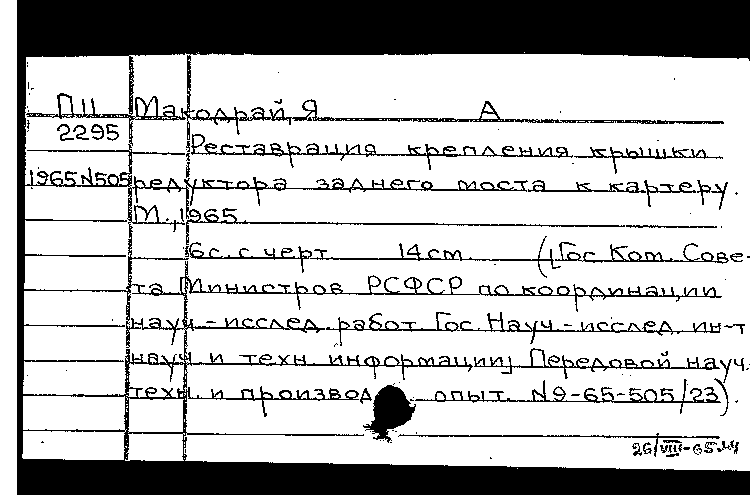 П11 Макодрай, Я А
2295
Реставрация крепления крышки
1965 N505 редуктора заднего моста к картеру.
М., 1965.
6с. с черт. 14 cm. ([Гос. Ком. Сове-
та Министров РСФСР по координации
науч-исслед. работ. Гос. Науч-исслед. ин-т
науч и техн. информации] Передовой науч.
техн. и производ. опыт. N9-65-505/23).
26/VIII-65